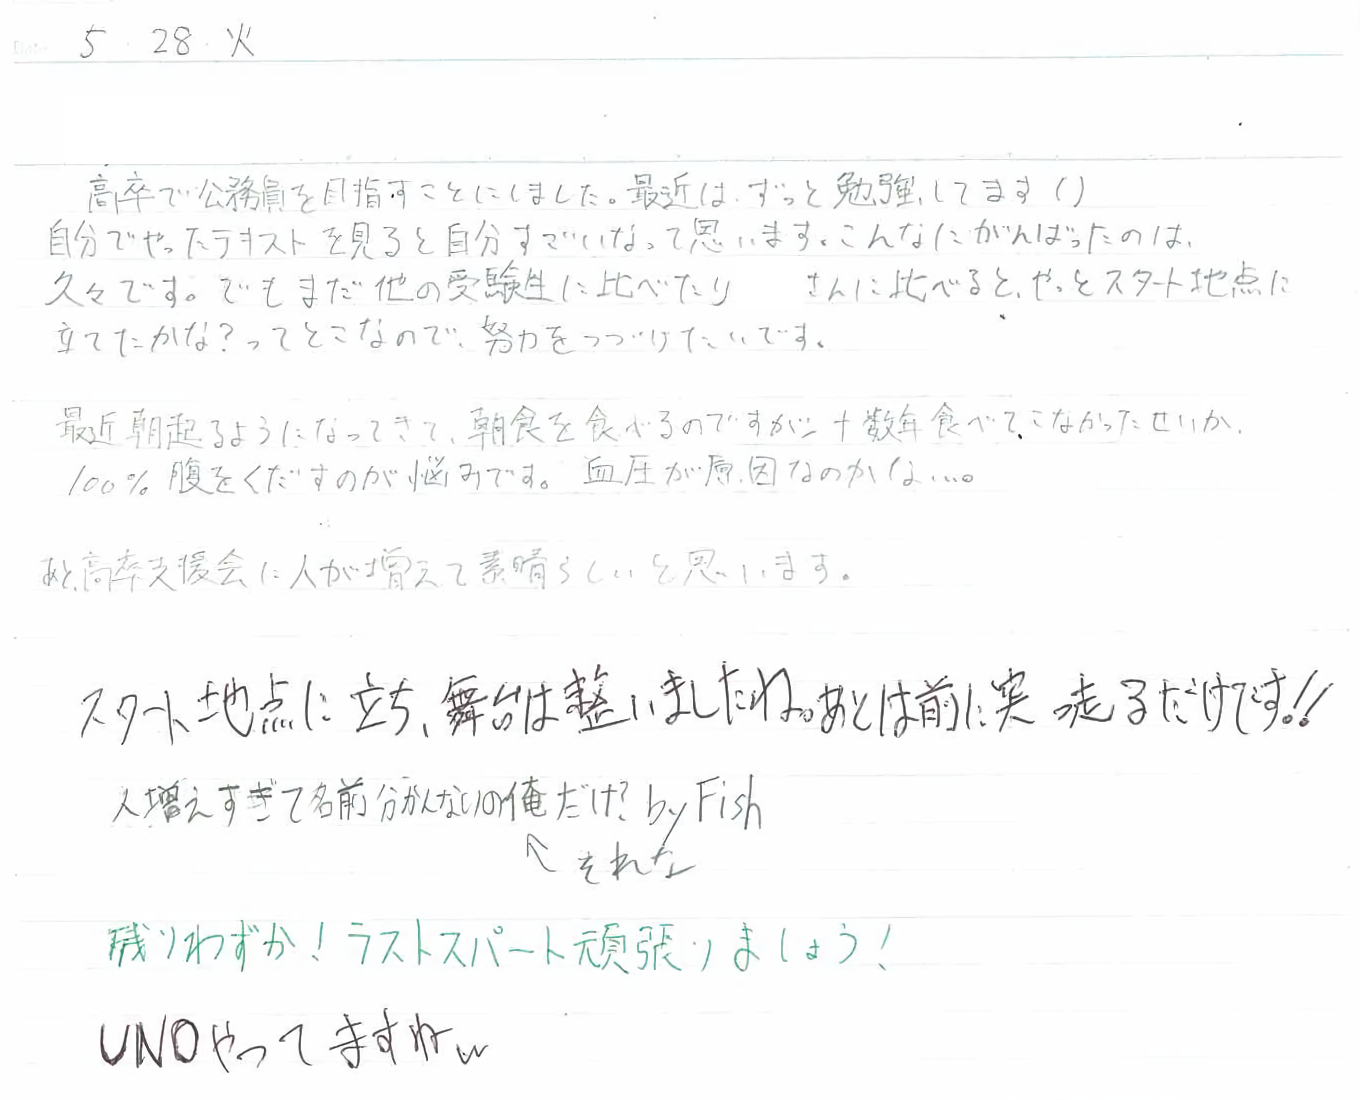 5・28・火
高卒で公務員を目指すことにしました。最近は、ずっと勉強してます()
自分でやったテキストを見ると自分すごいなって思います。こんなにがんばったのは、
久々です。でもまだ他の受験生に比べたり さんに比べると、やっとスタート地点に
立てたかな?ってとこなので、努力をつづけたいです。
最近朝起るようになってきて、朝食を食べるのですが、十数年食べてこなかったせいか、
100%腹をくだすのが悩みです。血圧が原因なのかな…。
あと、高卒支援会に人が増えて素晴らしいと思います。
スタート地点に立ち、舞台は整いましたね。あとは前に突っ走るだけです!!
人増えすぎて名前分かんないの俺だけ? by Fish
↖ それな
残りわずか!ラストスパート頑張りましょう!
UNOやってますねw